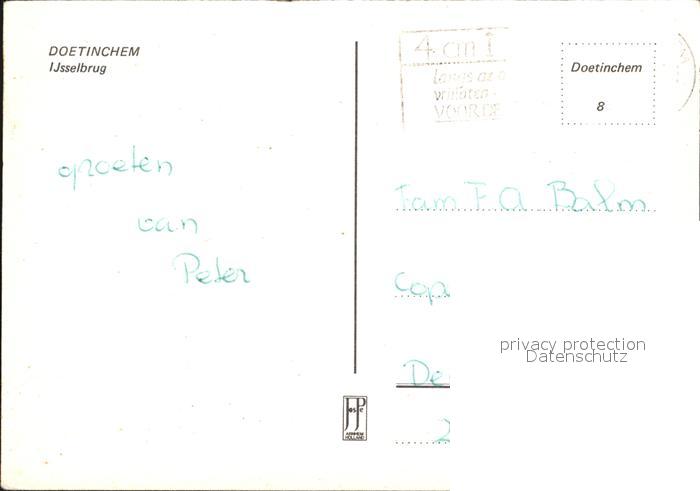 DOETINCHEM
IJsselbrug
groeten
van
Peter
4 cm
langs de
VOORDE
Doetinchem
8
Fam F A Balm
Cop
De
2
privacy protection
Datenschutz
ARNHEM
HOLLAND